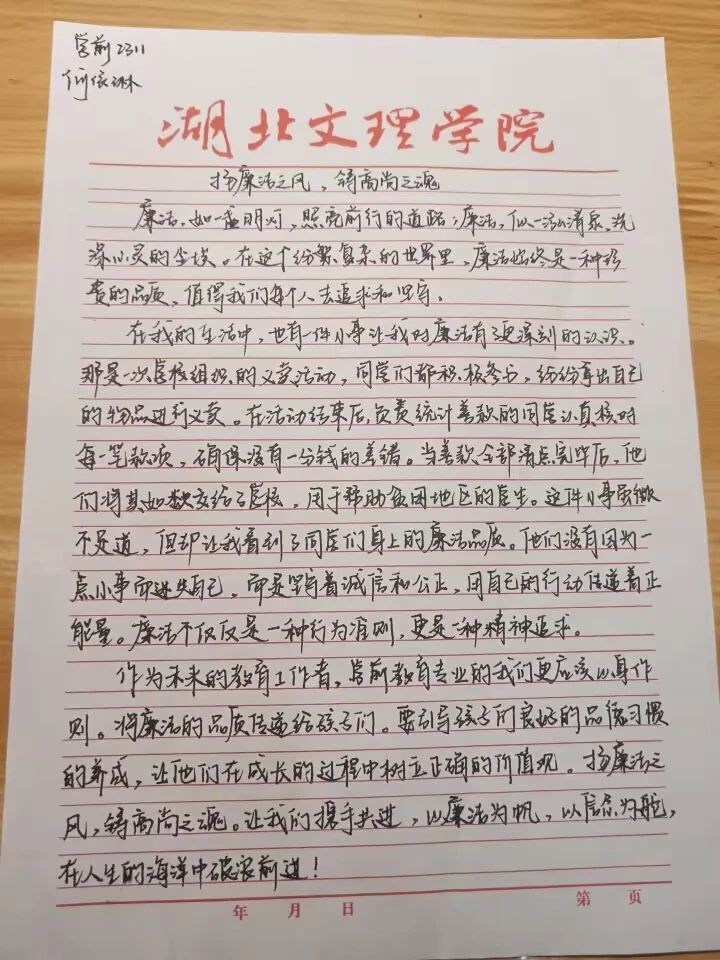 学前2311
何依琳
湖北文理学院
扬廉洁之风，铸高尚之魂
廉洁，如一盏明灯，照亮前行的道路；廉洁，似一泓清泉，洗
涤心灵的尘埃。在这个纷繁复杂的世界里，廉洁始终是一种珍
贵的品质，值得我们每个人去追求和坚守。
在我的生活中，也有一件小事让我对廉洁有了更深刻的认识。
那是一次学校组织的义卖活动，同学们都积极参与，纷纷拿出自己
的物品进行义卖。在活动结束后，负责统计善款的同学认真核对
每一笔款项，确保没有一分钱的差错。当善款全部清点完毕后，他
们将其如数交给了学校，用于帮助贫困地区的学生。这件小事虽微
不足道，但却让我看到了同学们身上的廉洁品质。他们没有因为一
点小事而迷失自己，而是坚守着诚信和公正，用自己的行动传递着正
能量。廉洁不仅仅是一种行为准则，更是一种精神追求。
作为未来的教育工作者，学前教育专业的我们更应该以身作
则。将廉洁的品质传递给孩子们。要引导孩子们良好的品德习惯
的养成，让他们在成长的过程中树立正确的价值观。扬廉洁之
风，铸高尚之魂。让我们携手共进，以廉洁为帆，以信念为舵，
在人生的海洋中破浪前进！
年 月 日
第 页